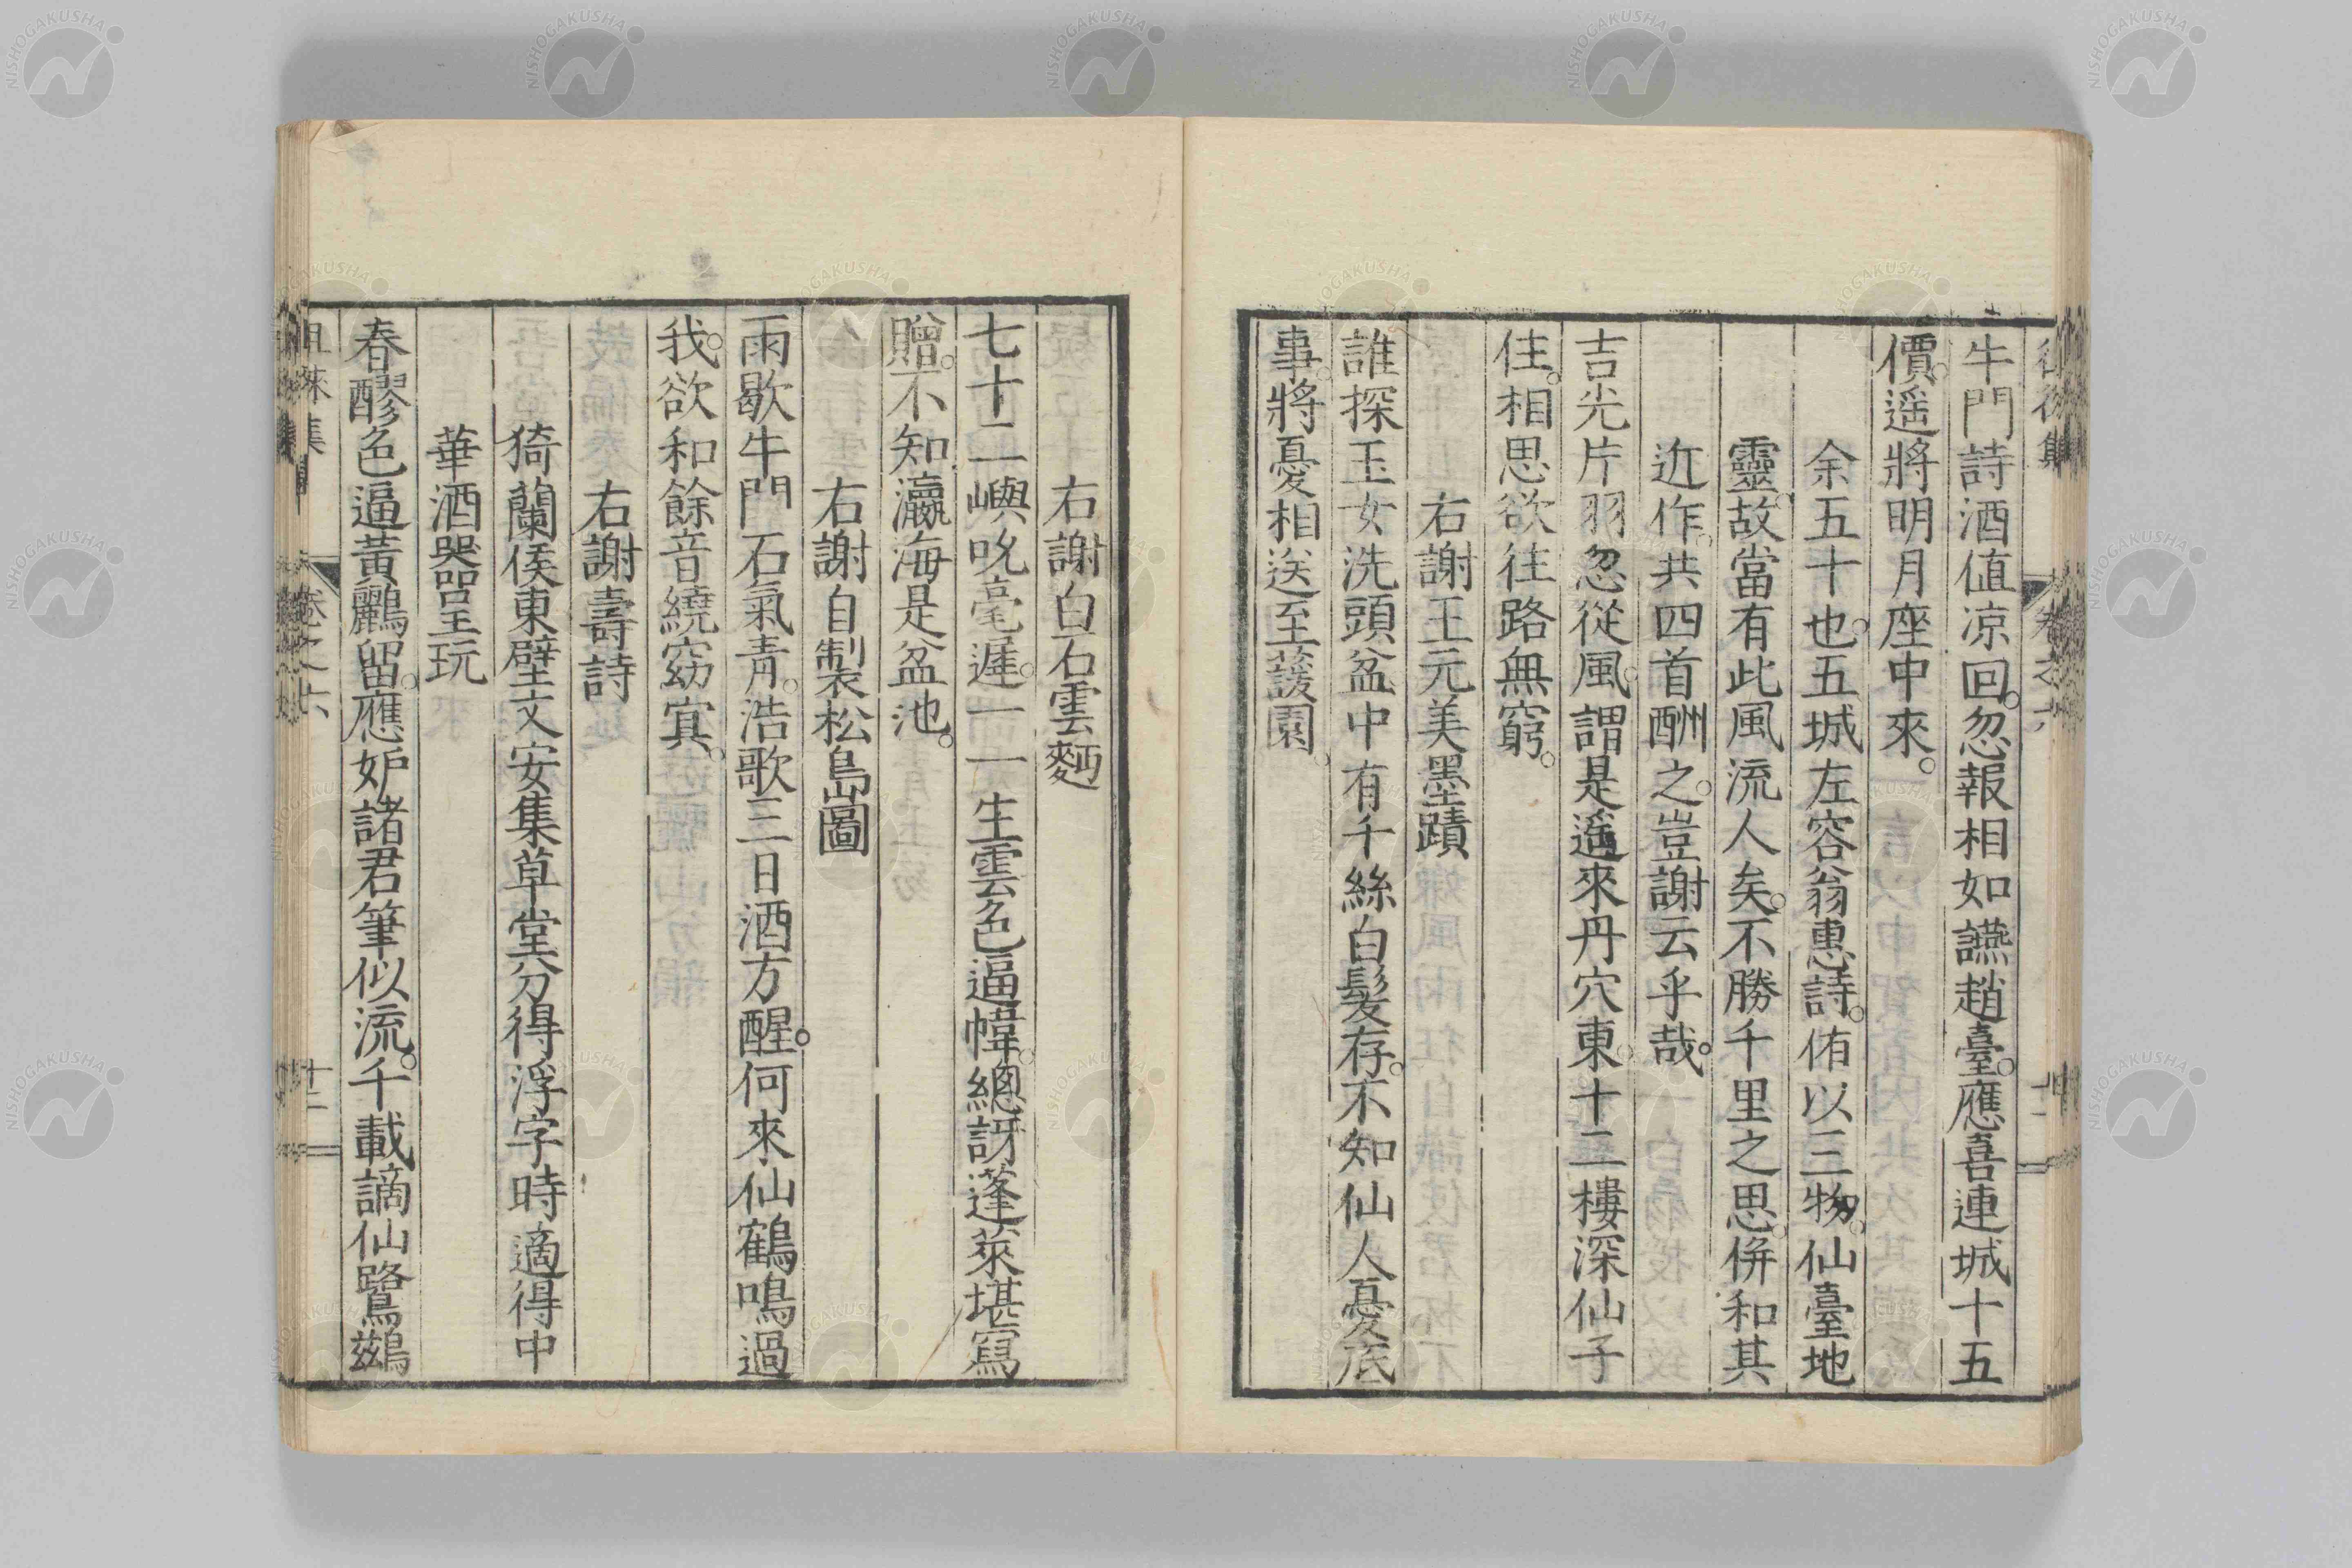 牛門詩酒値凉回。忽報相如讌趙臺。應喜連城十五
價。遥將明月座中來。
余五十也。五城左容翁惠詩。侑以三物。仙臺地
靈。故當有此風流人矣。不勝千里之思。併和其
近作。共四首酬之。豈謝云乎哉。
吉光片羽忽從風。謂是遙來丹穴東。十二樓深仙子
住。相思欲往路無窮。
右謝王元美墨蹟
誰探玉女洗頭盆。中有千絲白髮存。不知仙人憂底
事。將憂相送至蘐園。
右謝白石雲麪
七十二嶼吮毫遲。一一生雲色逼幃。總訝蓬萊堪寫
贈。不知瀛海是盆池。
右謝自製松島圖
雨歇牛門石氣青。浩歌三日酒方醒。何來仙鶴鳴過
我。欲和餘音繞窈寘。
右謝壽詩
猗蘭侯東壁文安集草堂分得浮字時適得中
華酒器呈玩
春醪色逼黃鸝留。應妒諸君筆似流。千載謫仙鷺鷀
徂徠集
卷之六